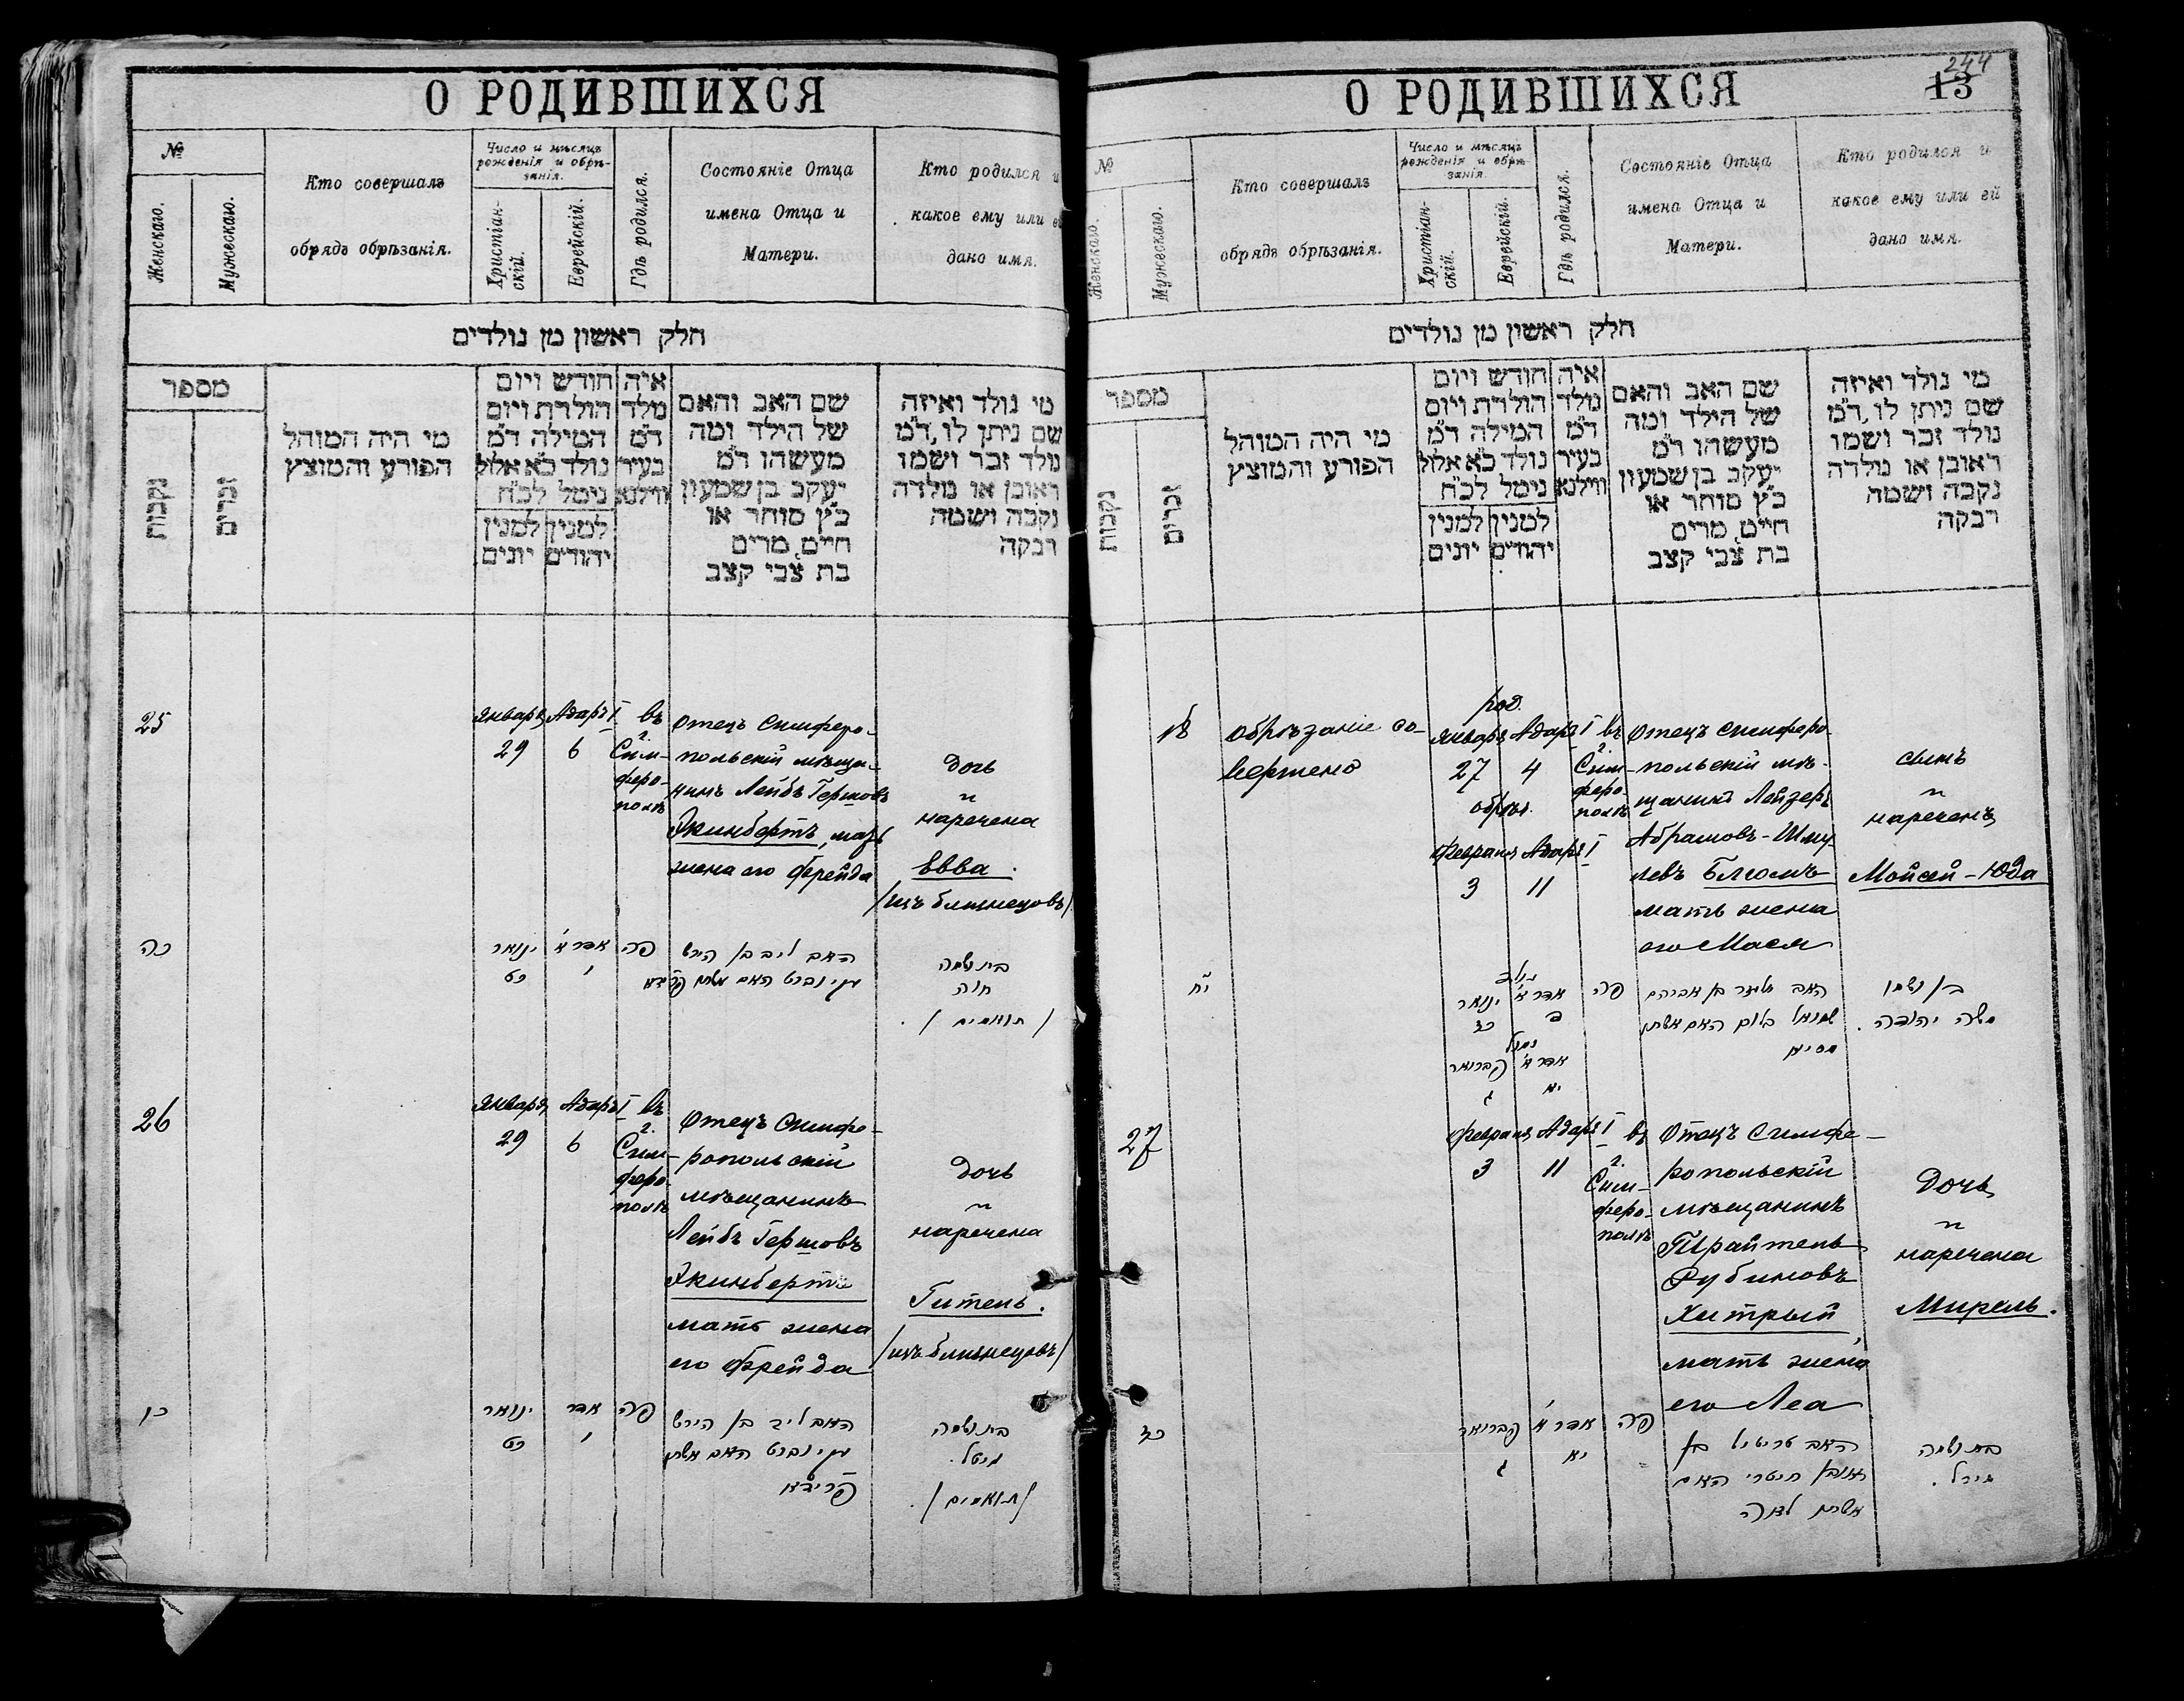 О РОДИВШИХСЯ
№
Женскаго.
Мужескаго.
Кто совершалъ
обрядъ обрѣзанія.
Число и мѣсяцъ
рожденія и обрѣ-
занія.
Христіан-
скій.
Еврейскій.
Гдѣ родился.
Состояніе Отца
имена Отца и
Матери.
Кто родился и
какое ему или ей
дано имя.
חלק ראשון מן נולדים
מספר
נקבות
זכרים
מי היה המוהל
הפורע והמוצץ
חודש ויום
הולדת ויום
המילה ד״מ
נולד כ״א אלול
נימל לכ״ח
למנין למנין
יהודים יונים
איה
מלד
ד״מ
בעיר
ווילנא
שם האב והאם
של הילד ומה
מעשהו ד״מ
יעקב בן שמעון
כ״ץ סוחר או
חיים, מרים
בת צבי קצב
מי נולד ואיזה
שם ניתן לו, ד״מ
נולד זכר ושמו
ראובן או נולדה
נקבה ושמה
רבקה
25
Января
29
Адаръ I
6
въ
г.
Сим-
феро-
полѣ
Отецъ Симферо-
польскій мѣща-
нинъ Лейбъ Гершовъ
Экинбертъ, мать
жена его Фрейда
Дочь
и
наречена
Евва.
/изъ близнецовъ/
כה
ינואר
כט
אדר א׳
ו
פה
האב ליב בן הירש
עקינברט האם אשתו פריידא
בת ושמה
חוה
/ תואמים / .
26
Января
29
Адаръ I
6
въ
г.
Сим-
феро-
полѣ
Отецъ Симфе-
ропольскій
мѣщанинъ
Лейбъ Гершовъ
Экинбертъ
мать жена
его Фрейда
Дочь
и
наречена
Гитель.
/изъ близнецовъ/
כו
ינואר
כט
אדר
ו
פה
האב ליב בן הירש
עקינברט האם אשתו
פריידא
בת ושמה
גיטל.
/תואמים/ .
О РОДИВШИХСЯ
244
13
№
Женскаго.
Мужескаго.
Кто совершалъ
обрядъ обрѣзанія.
Число и мѣсяцъ
рожденія и обрѣ-
занія.
Христіан-
скій.
Еврейскій.
Гдѣ родился.
Состояніе Отца
имена Отца и
Матери.
Кто родился и
какое ему или ей
дано имя.
חלק ראשון מן נולדים
מספר
נקבות
זכרים
מי היה המוהל
הפורע והמוצץ
חודש ויום
הולדת ויום
המילה ד״מ
נולד כ״א אלול
נימל לכ״ח
למנין למנין
יהודים יונים
איה
מלד
ד״מ
בעיר
ווילנא
שם האב והאם
של הילד ומה
מעשהו ד״מ
יעקב בן שמעון
כ״ץ סוחר או
חיים, מרים
בת צבי קצב
מי נולד ואיזה
שם ניתן לו, ד״מ
נולד זכר ושמו
ראובן או נולדה
נקבה ושמה
רבקה
18
Обрѣзаніе со-
вершено
род.
Января
27
Адаръ I
4
обрѣз.
Февраля
3
Адаръ I
11
въ
г.
Сим-
феро-
полѣ
Отецъ Симферо-
польскій мѣ-
щанинъ Лейзеръ
Абрамовъ-Шму-
левъ Блюмъ
мать жена
его Мася
сынъ
и
нареченъ
Мойсей-Юда
יח
נולד
ינואר
כז
אדר א׳
ד
נימול
פברואר
ג
אדר א׳
יא
פה
האב אליעזר בן אברהם
שמואל בלום האם אשתו
מסיא
בן ושמו
משה יהודה.
27
Февраля
3
Адаръ I
11
въ
г.
Сим-
феро-
полѣ
Отецъ Симфе-
ропольскій
мѣщанинъ
Рубиновъ
Хитрый,
мать жена
его Леа
Дочь
и
наречена
Мирель.
כז
פברואר
ג
אדר א׳
יא
פה
האב טרייטיל בן
ראובן חיטרי האם
אשתו לאה
בת ושמה
מירל.